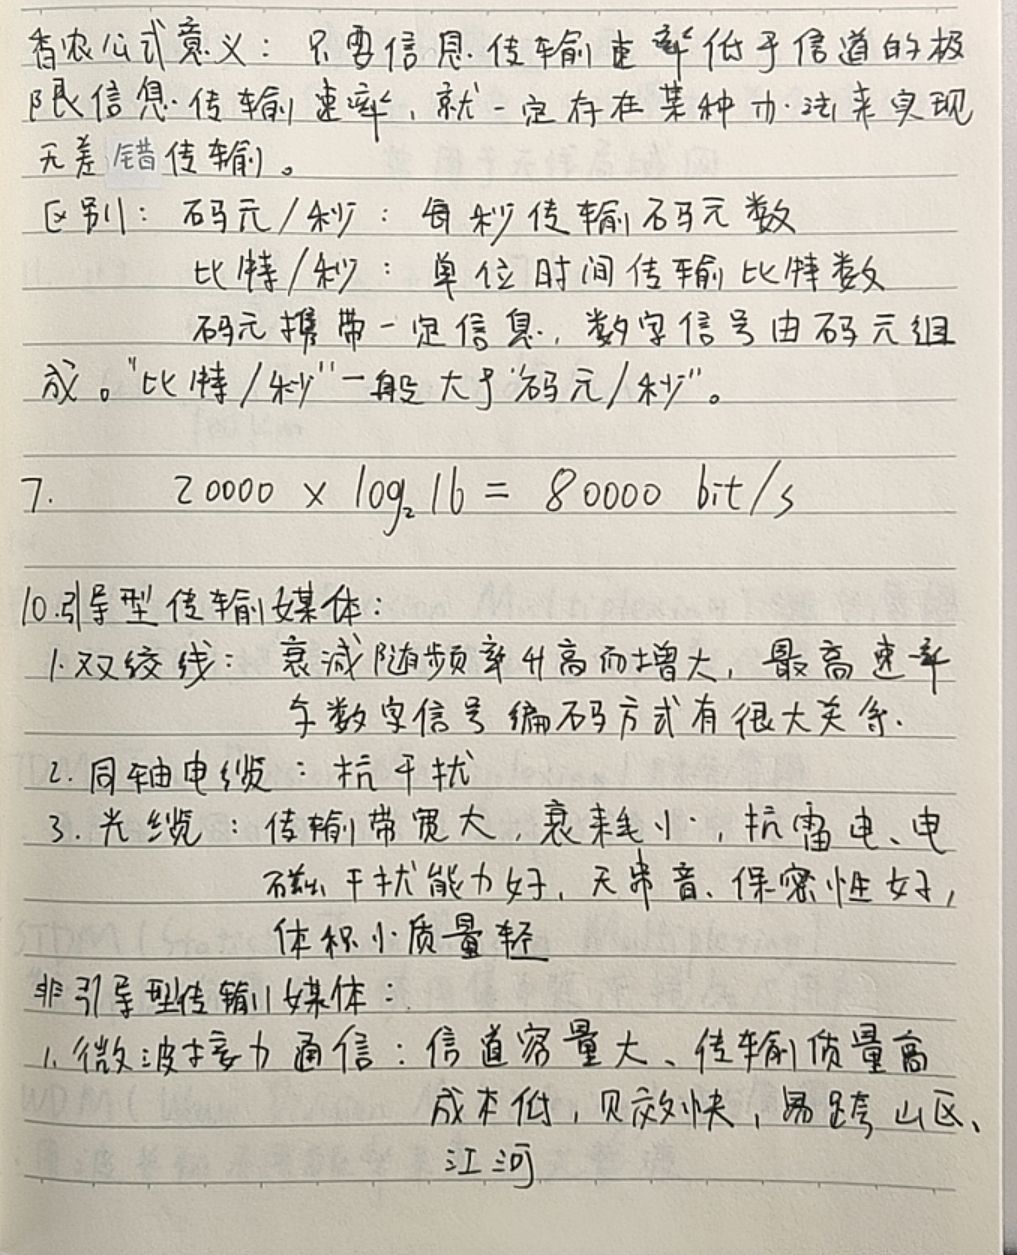 香农公式意义：只要信息传输速率低于信道的极
限信息传输速率，就一定存在某种办法来实现
无差错传输。
区别：码元/秒：每秒传输码元数
比特/秒：单位时间传输比特数
码元携带一定信息，数字信号由码元组
成。“比特/秒”一般大于“码元/秒”。
7. 20000 × log₂16 = 80000 bit/s
10.引导型传输媒体：
1.双绞线：衰减随频率升高而增大，最高速率
与数字信号编码方式有很大关系.
2.同轴电缆：抗干扰
3.光缆：传输带宽大，衰耗小，抗雷电、电
磁干扰能力好，无串音、保密性好，
体积小质量轻
非引导型传输媒体：
1.微波接力通信：信道容量大、传输质量高
成本低，见效快，易跨山区、
江河